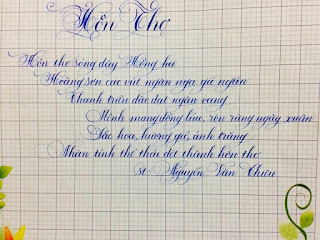 Hồn Thơ
Hồn thơ sông dậy Hồng hà
Hoàng sơn cao vút ngân nga gió ngàn
Thanh trữu dìu dặt ngân vang
Mênh mang đồng lúa, rộn ràng ngày xuân
Sắc hoa, hương gió, ánh trăng
Nhân tình thế thái dệt thành hồn thơ
st Nguyễn Văn Chiêu